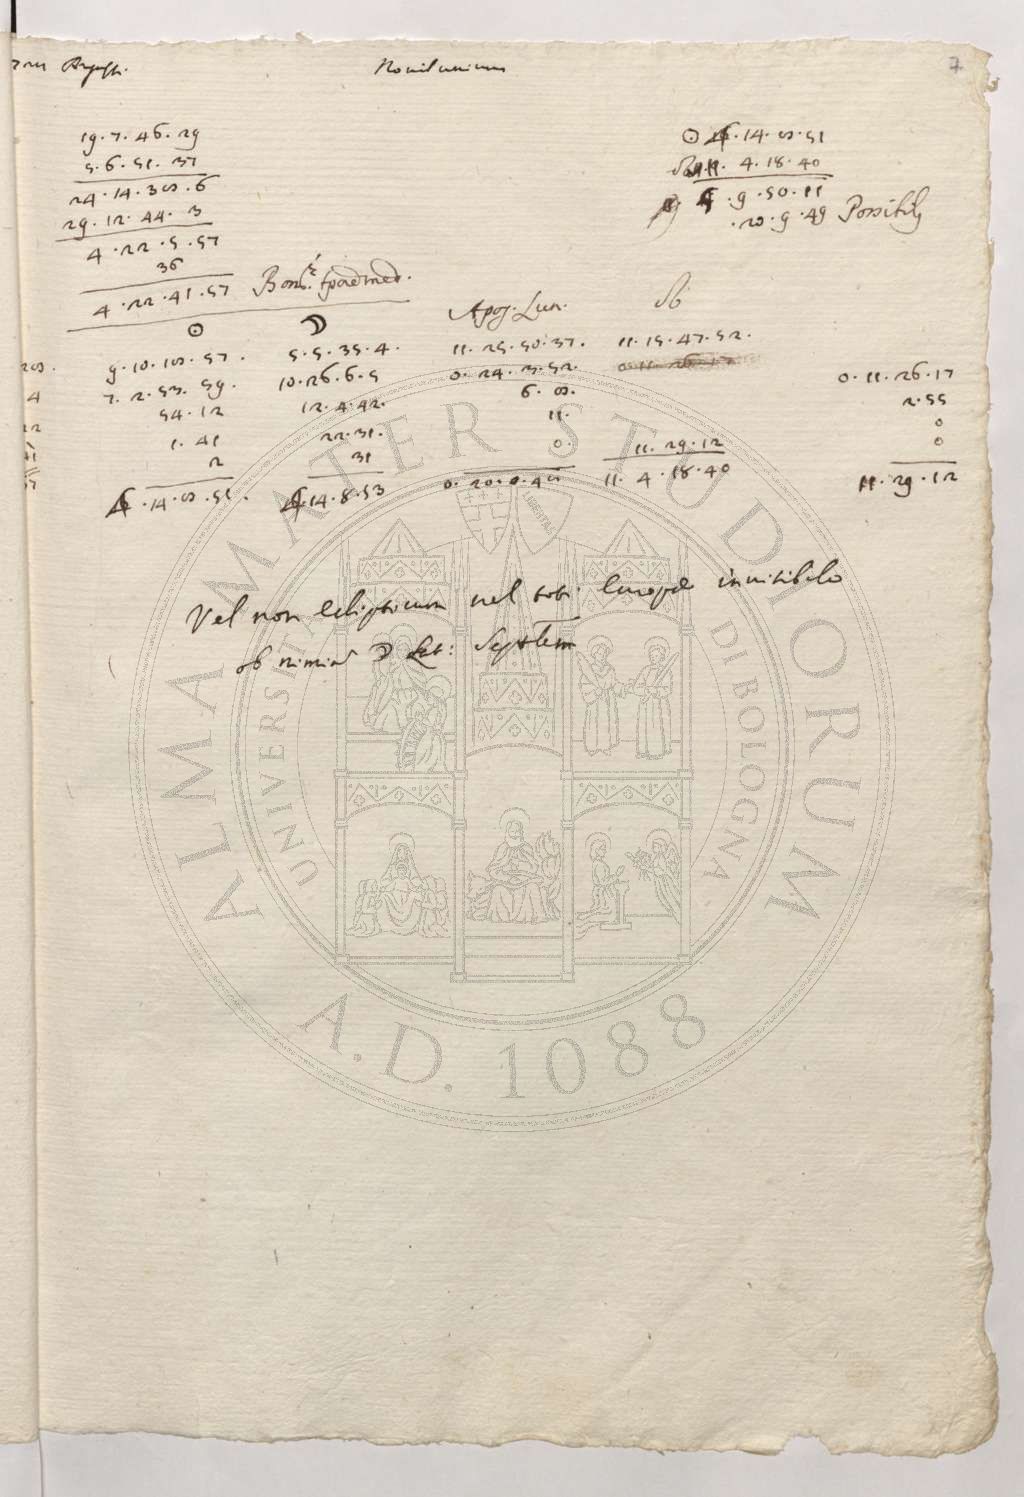 Novilunium
7
19. 7. 46. 29
5. 6. 51. 37
24. 14. 38. 6
29. 12. 44. 3
4. 22. 5. 57
36
4. 22. 41. 57
☉ 14. 8. 51
☊ 11. 4. 18. 40
9. 50. 11
20. 9. 49 Possibilis
☉ ☽ Apog. Lun. ☊
9. 10. 18. 57. 5. 5. 35. 4. 11. 25. 50. 37. 11. 15. 47. 52.
7. 2. 53. 59. 10. 26. 6. 5 0. 24. 3. 52. 0. 11. 26. 17
54. 12 12. 4. 42. 6. 8. 2. 55
1. 41 22. 31. 11. 0
2 31 0. 11. 29. 12 0
14. 8. 51. 14. 8. 53 11. 4. 18. 40 11. 29. 12
Vel non eclipticum vel toti Europæ invisibile
ob nimiã ☽ Lat: Septem
ALMA MATER STUDIORUM
UNIVERSITÀ DI BOLOGNA
LIBERTAS
A.D. 1088